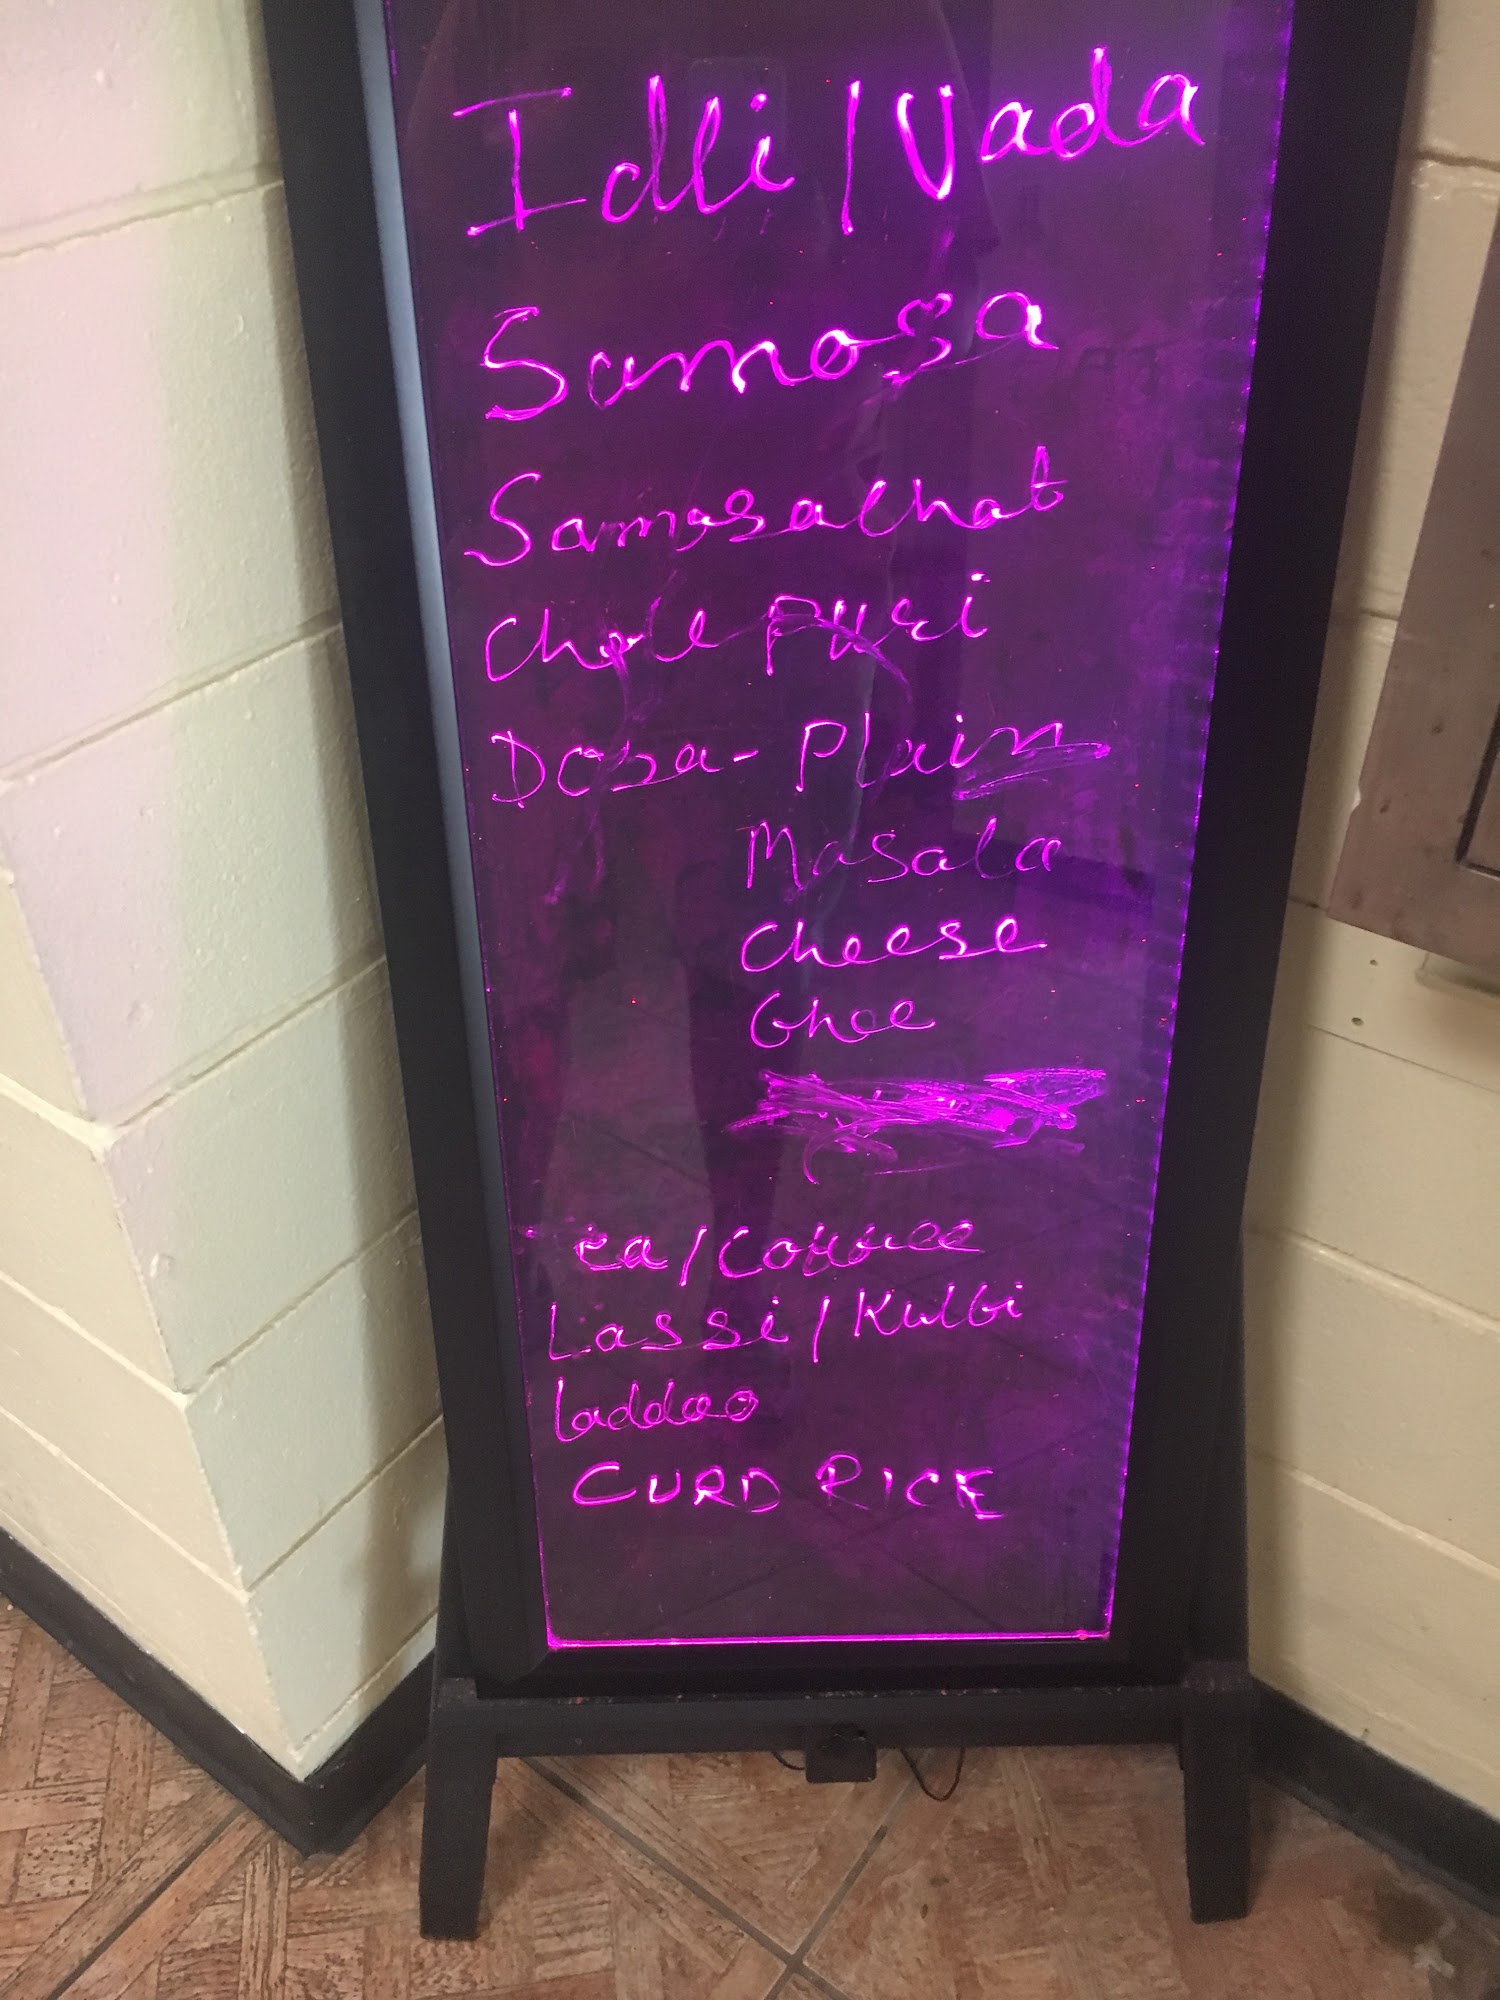 Idli / Vada
Samosa
Samosa chat
Chole Puri
Dosa - Plain
Masala
Cheese
Ghee
ea / Coffee
Lassi / Kulfi
laddoo
CURD RICE